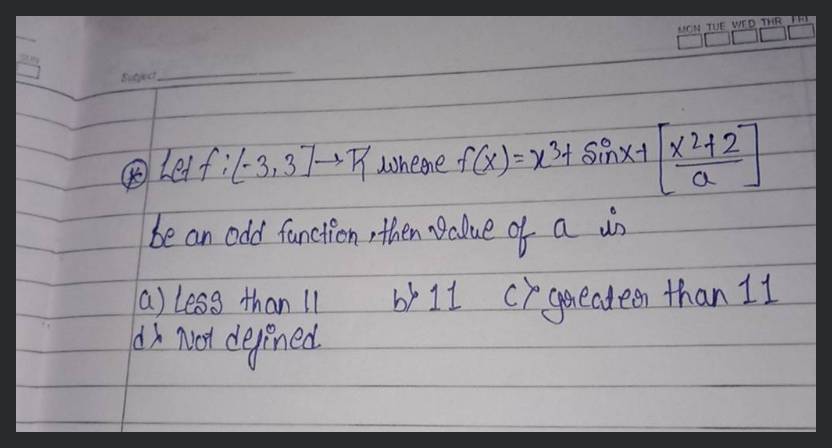 MON TUE WED THR FRI
Subject
* Let f : [-3, 3] → R where f(x) = x³ + sinx + [x²+2/a]
be an odd function, then value of a is
a) Less than 11 b) 11 c) greater than 11
d) Not defined